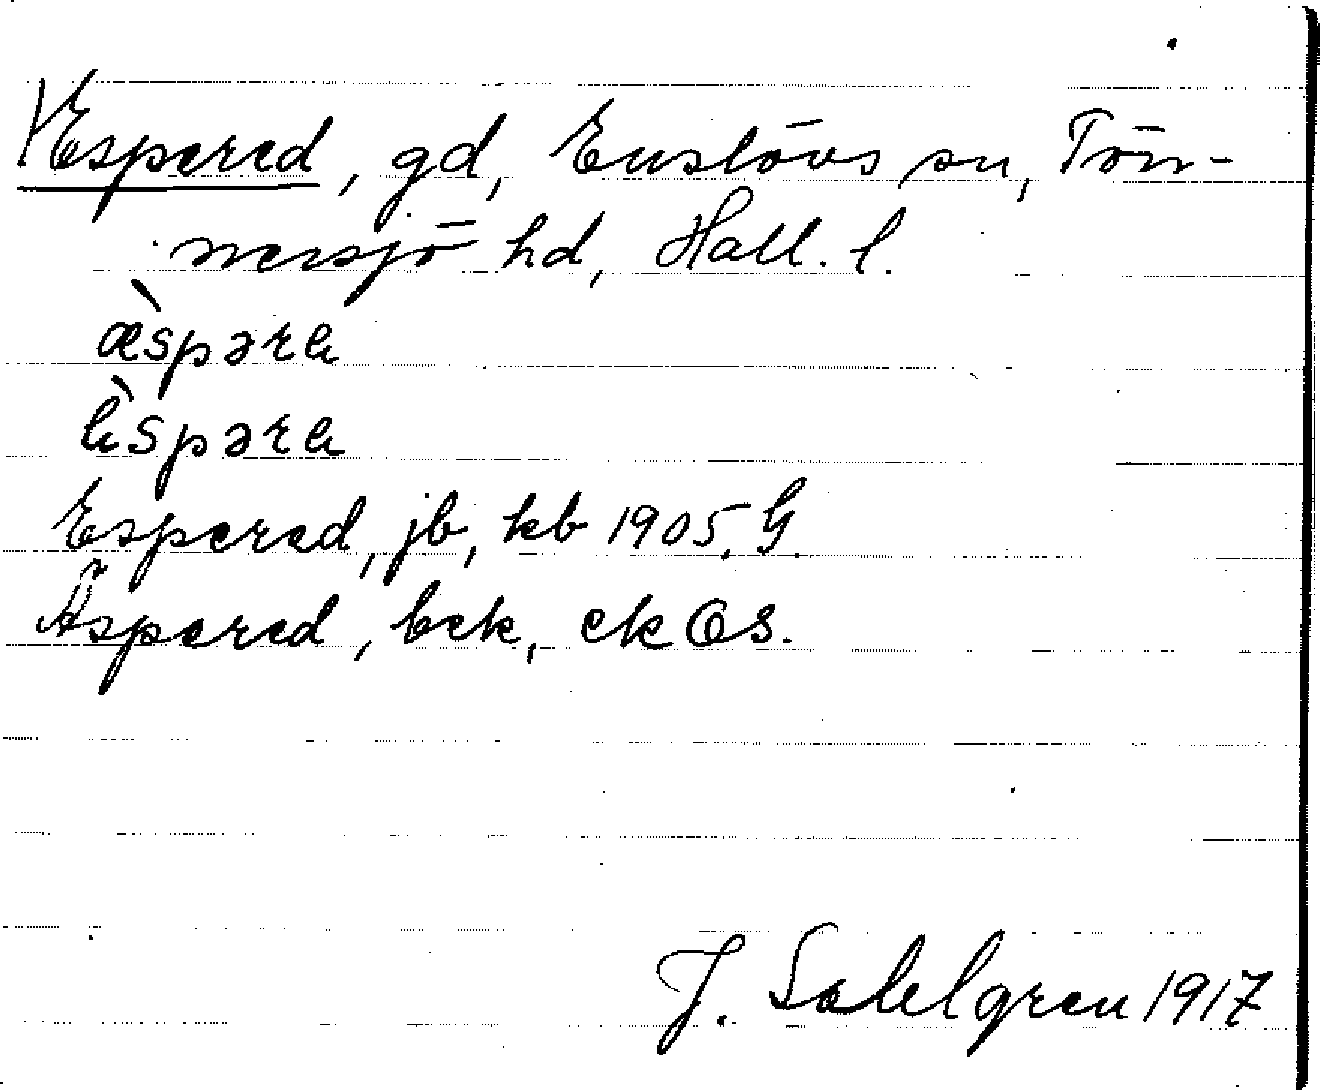 Espered, gd, Enslövs sn, Tön-
nersjö hd, Hall. l.
Espered, jb, kb 1905, G.
Äspered, bck, ek Ös.
J. Sahlgren 1917